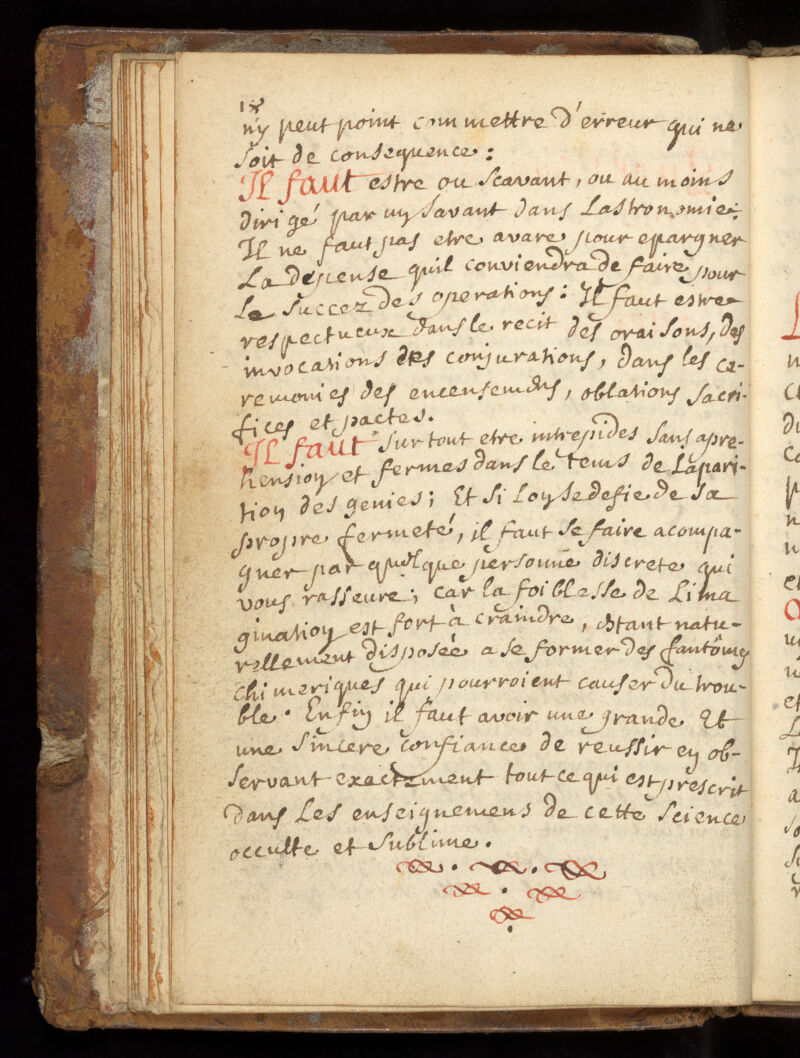 18
n'y peut point commettre d'erreur qui ne
soit de consequence :
Il faut estre ou scavant, ou au moins
dirigé par uy savant dans Lastronomie;
Il ne faut pas etre avare pour epargner
La depense quil conviendra de faire pour
le succez des operations : Il faut estre
respectueux dans le recit des oraisons, des
invocations des conjurations, dans les ce-
remonies des encensemens, oblations sacri-
fices et pactes.
Il faut surtout etre intrepides sans apre-
hensioy et fermes dans le tems de Lapari-
tioy des genies ; Et si Loy se defie de sa
propre fermeté, il faut se faire acompa-
gner par quelque personne discrete qui
vous rasseure ; car la foiblesse de Lima
ginatioy est fort à craindre, etant natu-
rellement disposée a se former des fantômes
chimeriques qui pourroient causer du trou-
ble. Enfiy il faut avoir une grande Et
une sincere confiance de reussir ey ob-
servant exactement tout ce qui est prescrit
dans Les enseignemens de cette science
occulte et sublime.